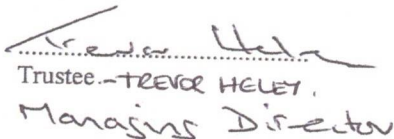 Trevor Heley
Trustee. - TREVOR HELEY.
Managing Director